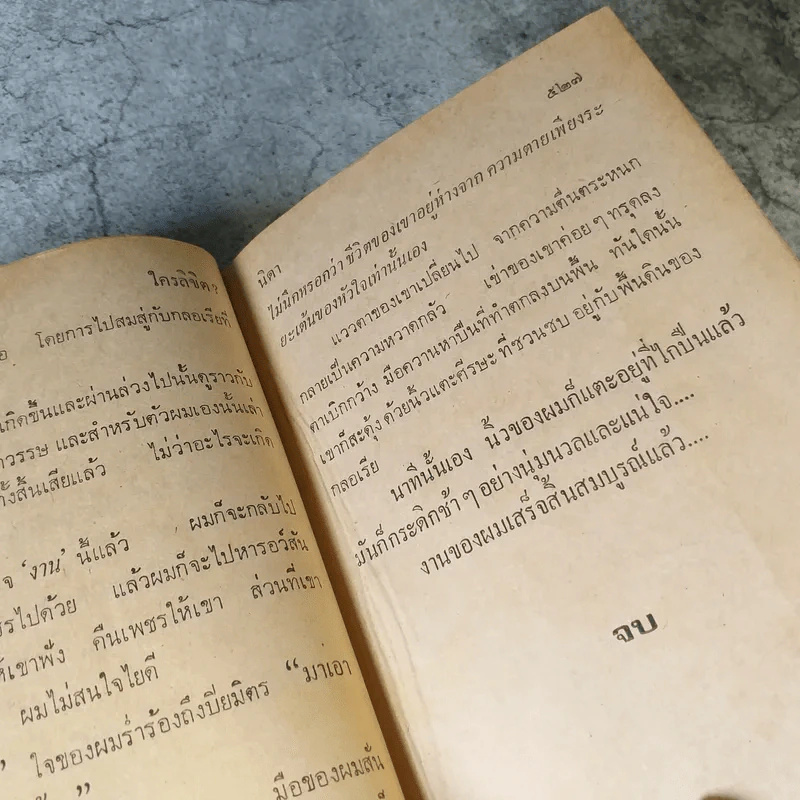 ใครลิขิต?
โดยการไปสมสู่กับกลอเรียที่
เกิดขึ้นและผ่านล่วงไปนั้นดูราวกับ
วรรษ และสำหรับตัวผมเองนั้นเล่า
สิ้นเสียแล้ว ไม่ว่าอะไรจะเกิด
‘งาน’ นี้แล้ว ผมก็จะกลับไป
ไปด้วย แล้วผมก็จะไปหารอว์สัน
ให้เขาฟัง คืนเพชรให้เขา ส่วนที่เขา
ผมไม่สนใจไยดี
” ใจของผมร่ำร้องถึงปิยมิตร “มาเอา
” มือของผมสั่น
๕๒๗
นิดา
ไม่นึกหรอกว่า ชีวิตของเขาอยู่ห่างจาก ความตายเพียงระ
ยะเต้นของหัวใจเท่านั้นเอง
แววตาของเขาเปลี่ยนไป จากความตื่นตระหนก
กลายเป็นความหวาดกลัว เข่าของเขาค่อย ๆ ทรุดลง
ตาเบิกกว้าง มือควานหาปืนที่ทำตกลงบนพื้น ทันใดนั้น
เขาก็สะดุ้ง ด้วยนิ้วแตะศีรษะ ที่ซวนซบ อยู่กับพื้นดินของ
กลอเรีย
นาทีนั้นเอง นิ้วของผมก็แตะอยู่ที่ไกปืนแล้ว
มันก็กระดิกช้า ๆ อย่างนุ่มนวลและแน่ใจ....
งานของผมเสร็จสิ้นสมบูรณ์แล้ว....
จบ